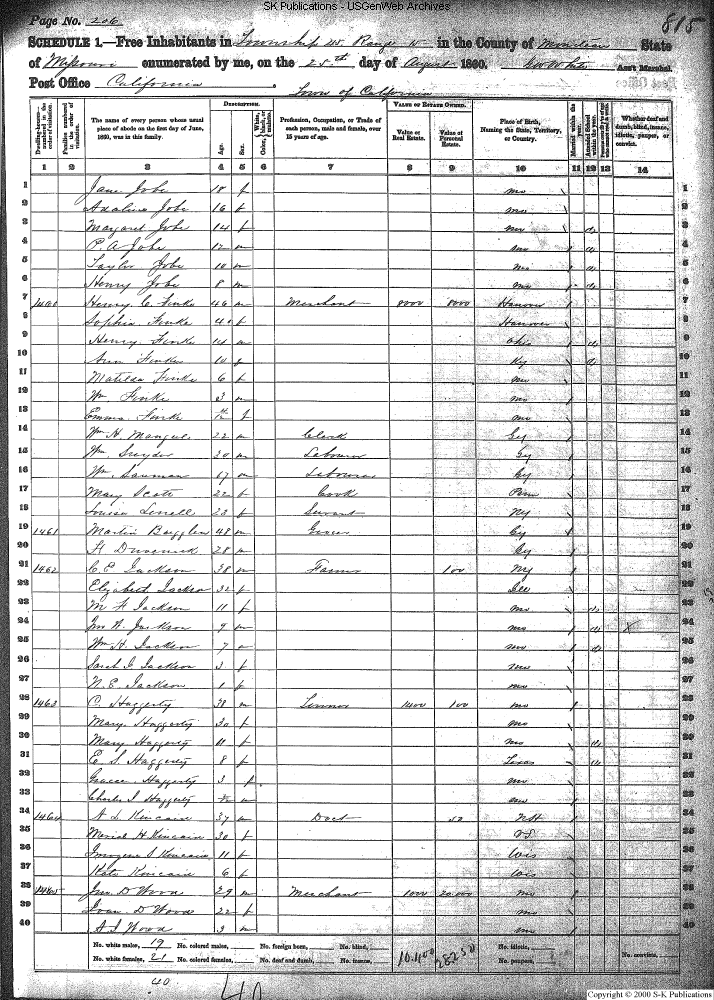 SK Publications - USGenWeb Archives
Page No. 206
815
SCHEDULE 1.—Free Inhabitants in Township 45 Range 15 in the County of Moniteau State
of Missouri enumerated by me, on the 25th day of August 1860. Ass't Marshal.
Post Office California. Town of California
Dwelling-houses—numbered in the order of visitation.
Families numbered in the order of visitation.
The name of every person whose usual place of abode on the first day of June, 1860, was in this family.
DESCRIPTION.
Age.
Sex.
Color, White, black, or mulatto.
Profession, Occupation, or Trade of each person, male and female, over 15 years of age.
VALUE OF ESTATE OWNED.
Value of Real Estate.
Value of Personal Estate.
Place of Birth, Naming the State, Territory, or Country.
Married within the year.
Attended School within the year.
Whether deaf and dumb, blind, insane, idiotic, pauper, or convict.
1 2 3 4 5 6 7 8 9 10 11 12 13 14
1 Jane Jobe 18 f Mo 1
2 Adaline Jobe 16 f Mo 2
3 Margaret Jobe 14 f Mo 3
4 P. A. Jobe 12 m Mo 4
5 Taylor Jobe 10 m Mo 5
6 Henry Jobe 8 m Mo 6
7 1460 Henry C. Finke 46 m Merchant 8000 8000 Hanover 7
8 Sophia Finke 40 f Hanover 8
9 Henry Finke 14 m Ohio 9
10 Ann Finke 10 f Ky 10
11 Matilda Finke 6 f Mo 11
12 Wm Finke 3 m Mo 12
13 Emma Finke f Mo 13
14 Wm H. 22 m Clerk 14
15 Wm Snyder 30 m Labourer 15
16 Wm 67 m Labourer 16
17 Mary Scott 22 f Cook 17
18 Louisa 23 f Servant NY 18
19 1461 Martin 48 m Grocer 19
20 28 m 20
21 1462 C. E. Jackson 38 m Farmer 100 NY 21
22 Elizabeth Jackson 32 f Ill 22
23 M F Jackson 11 f Mo 23
24 Jno W. Jackson 9 m Mo X 24
25 Wm H. Jackson 7 m Mo 25
26 Sarah J. Jackson 3 f Mo 26
27 N. E. Jackson 1 f Mo 27
28 1463 C. Haggerty 38 m 1400 100 Mo 28
29 Mary Haggerty 30 f Mo 29
30 Mary Haggerty 11 f Mo 30
31 E. S. Haggerty 8 f Texas 31
32 Haggerty 3 f Mo 32
33 Charles J. Haggerty m Mo 33
34 1464 A. L. Kincain 37 m Doct 50 NH 34
35 H Kincain 30 f 35
36 Imogene S Kincain 11 f Wis 36
37 Kate Kincain 6 f Wis 37
38 1465 Jno. D Wood 29 m Merchant 1000 20,000 Mo 38
39 D Wood 22 f Mo 39
40 A J Wood 3 m Mo 40
No. white males, 19 No. colored males, No. foreign born, No. blind, No. idiotic,
No. white females, 21 No. colored females, No. deaf and dumb, No. insane, No. paupers, No. convicts,
10,400 28250
40
40
Copyright © 2000 S-K Publications